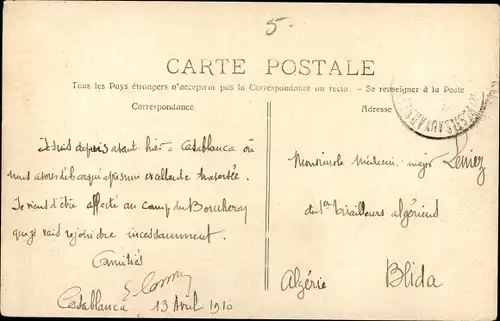 5.
CARTE POSTALE
Tous les Pays étrangers n'acceptent pas la Correspondance au recto. — Se renseigner à la Poste
Correspondance
Adresse
Je suis depuis avant hier à Casablanca où
nous avons débarqué après une excellente traversée.
Je viens d'être affecté au camp du Boucheron
que je vais rejoindre incessamment.
Amitiés
Casablanca 13 Avril 1910
Monsieur le Médecin-major
du 1er tirailleurs algériens
Blida
Algérie